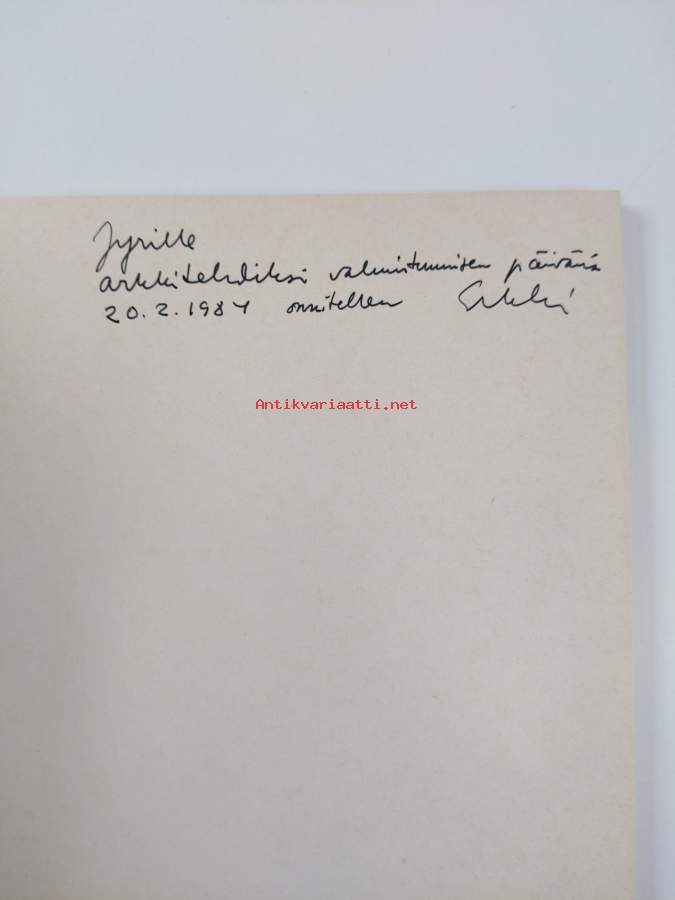 Jyrille
arkkitehdiksi valmistumisen päivänä
20.2.1984 onnitellen Erkki
Antikvariaatti.net